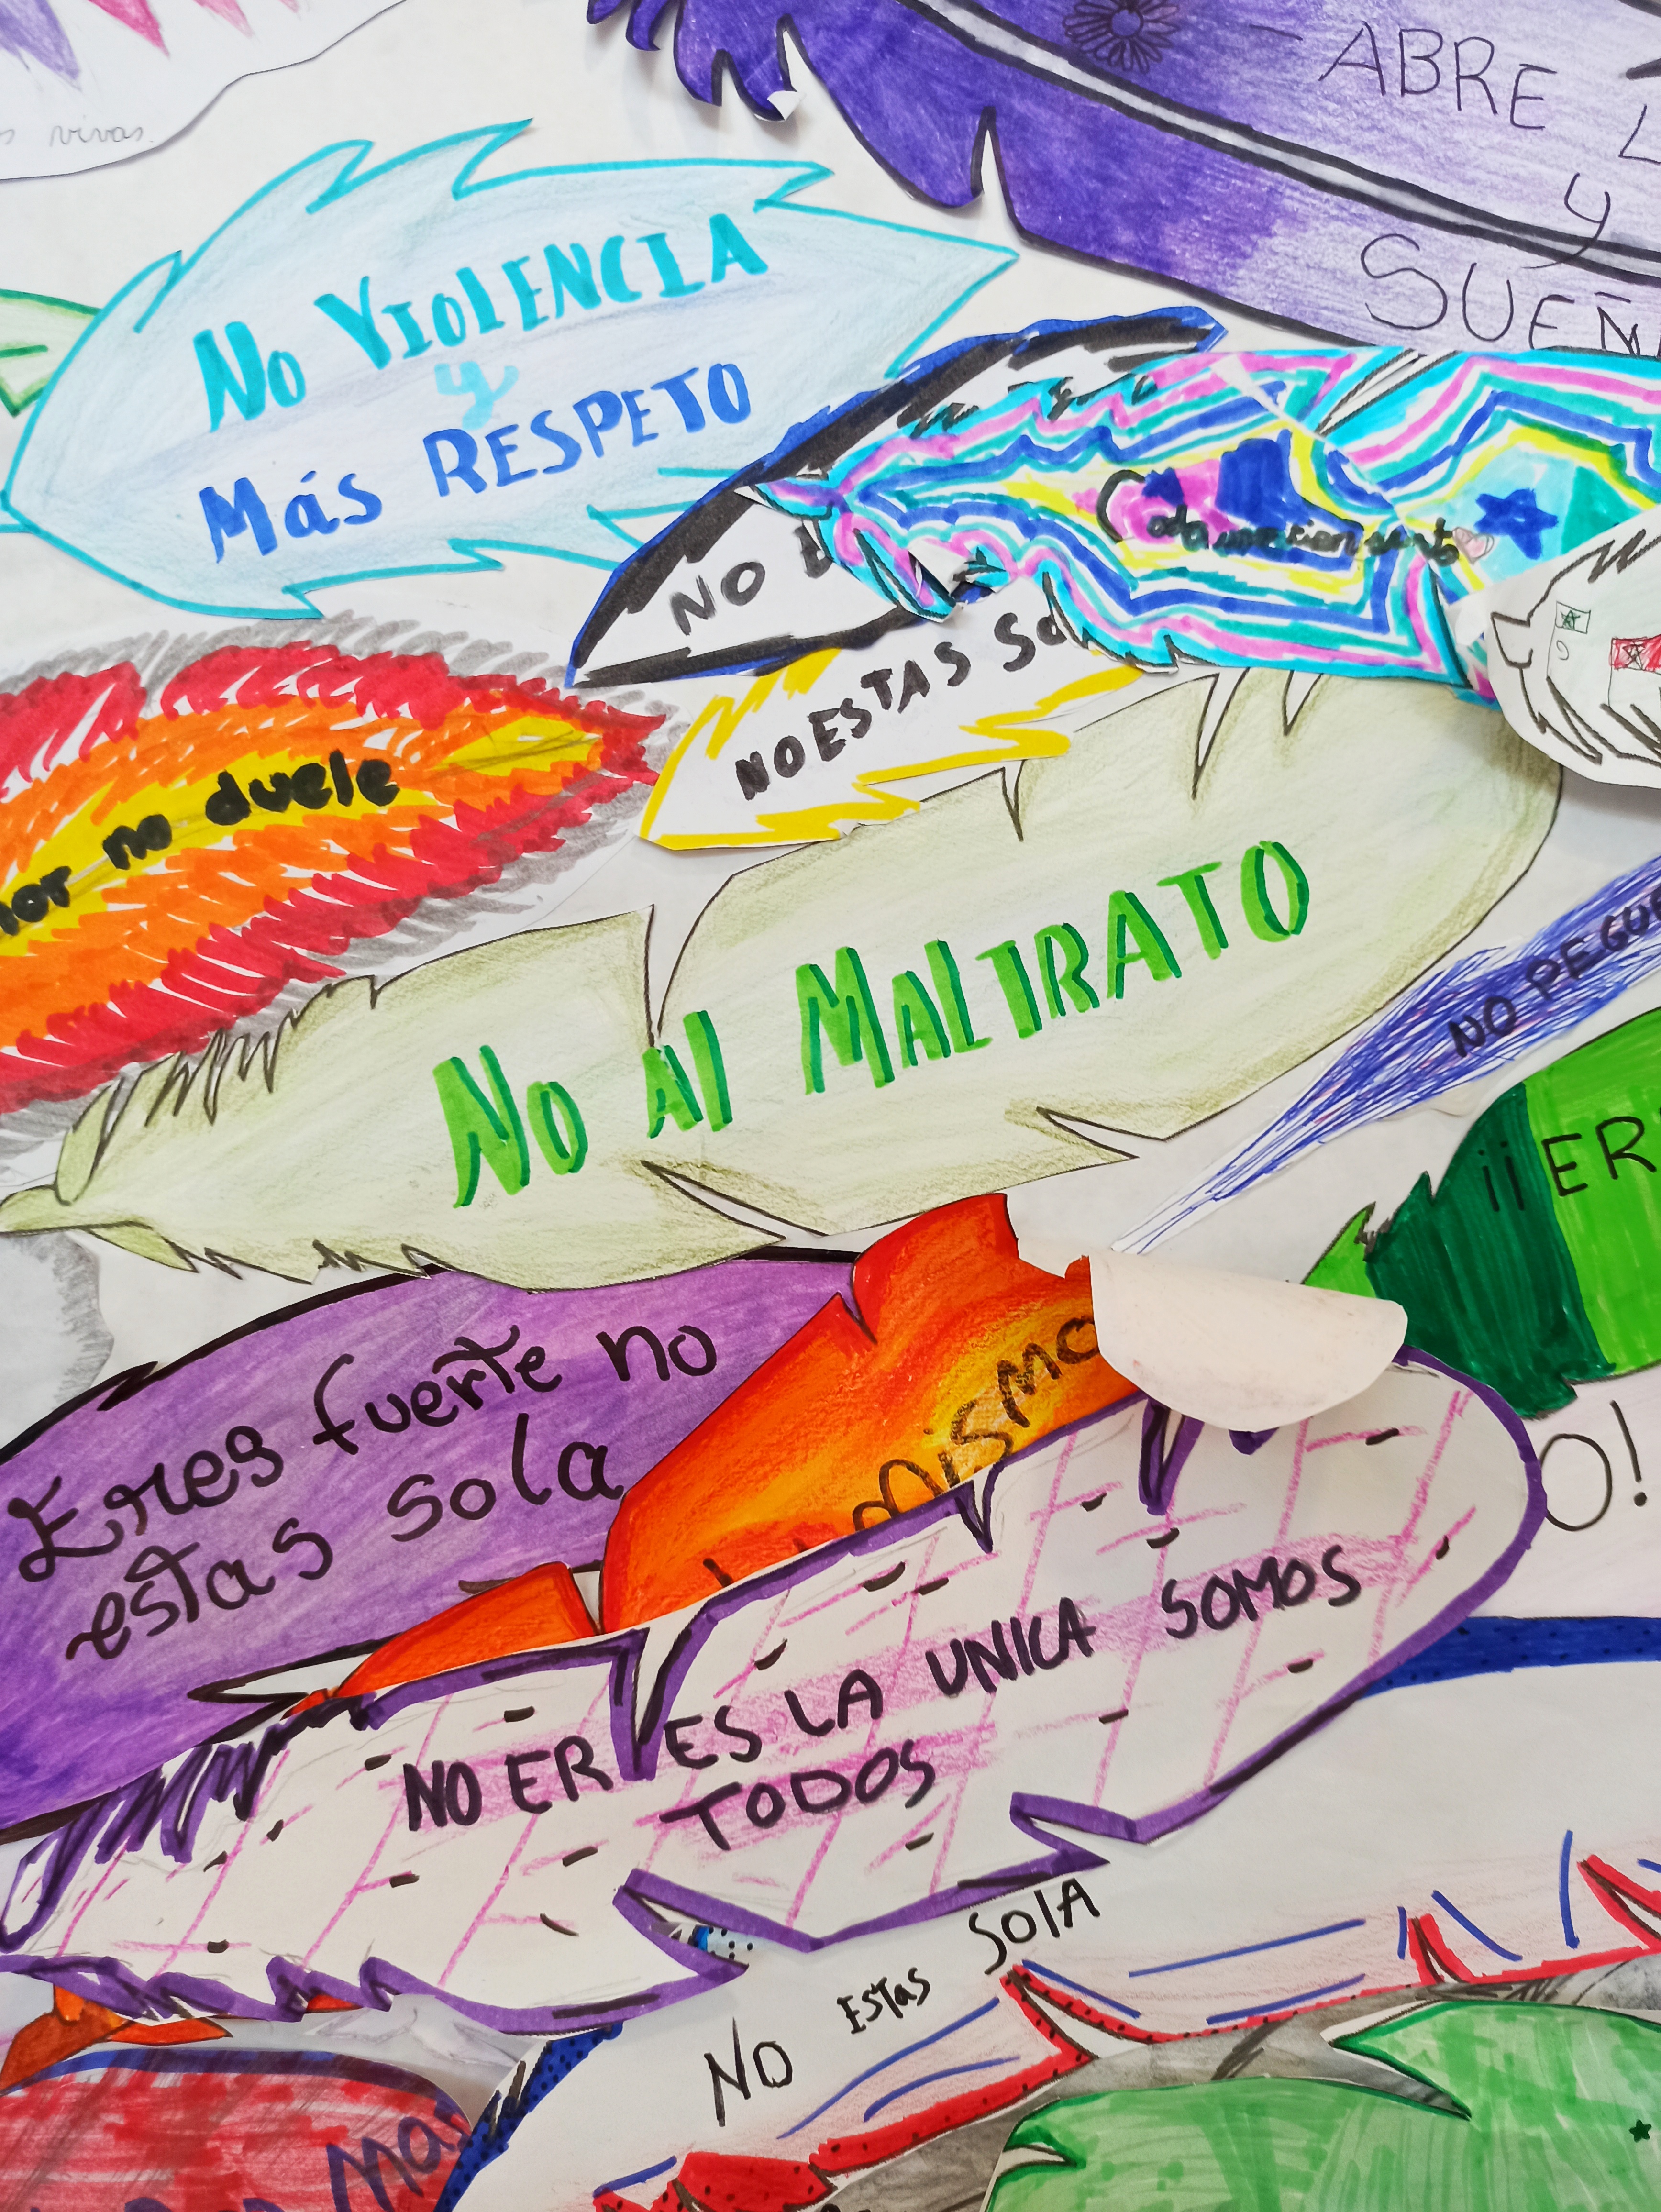 vivas.
ABRE
y
SUEÑ
NO VIOlENCIA
y
Más RESPETO
NO
NO ESTAS So
no duele
NO Al MALTRATO
NO PEGUE
¡¡ER
Eres fuerte no
estas sola
mismo
O!
NO ER ES LA UNICA SOMOS
TODOS
NO EsTas SOlA
Mas